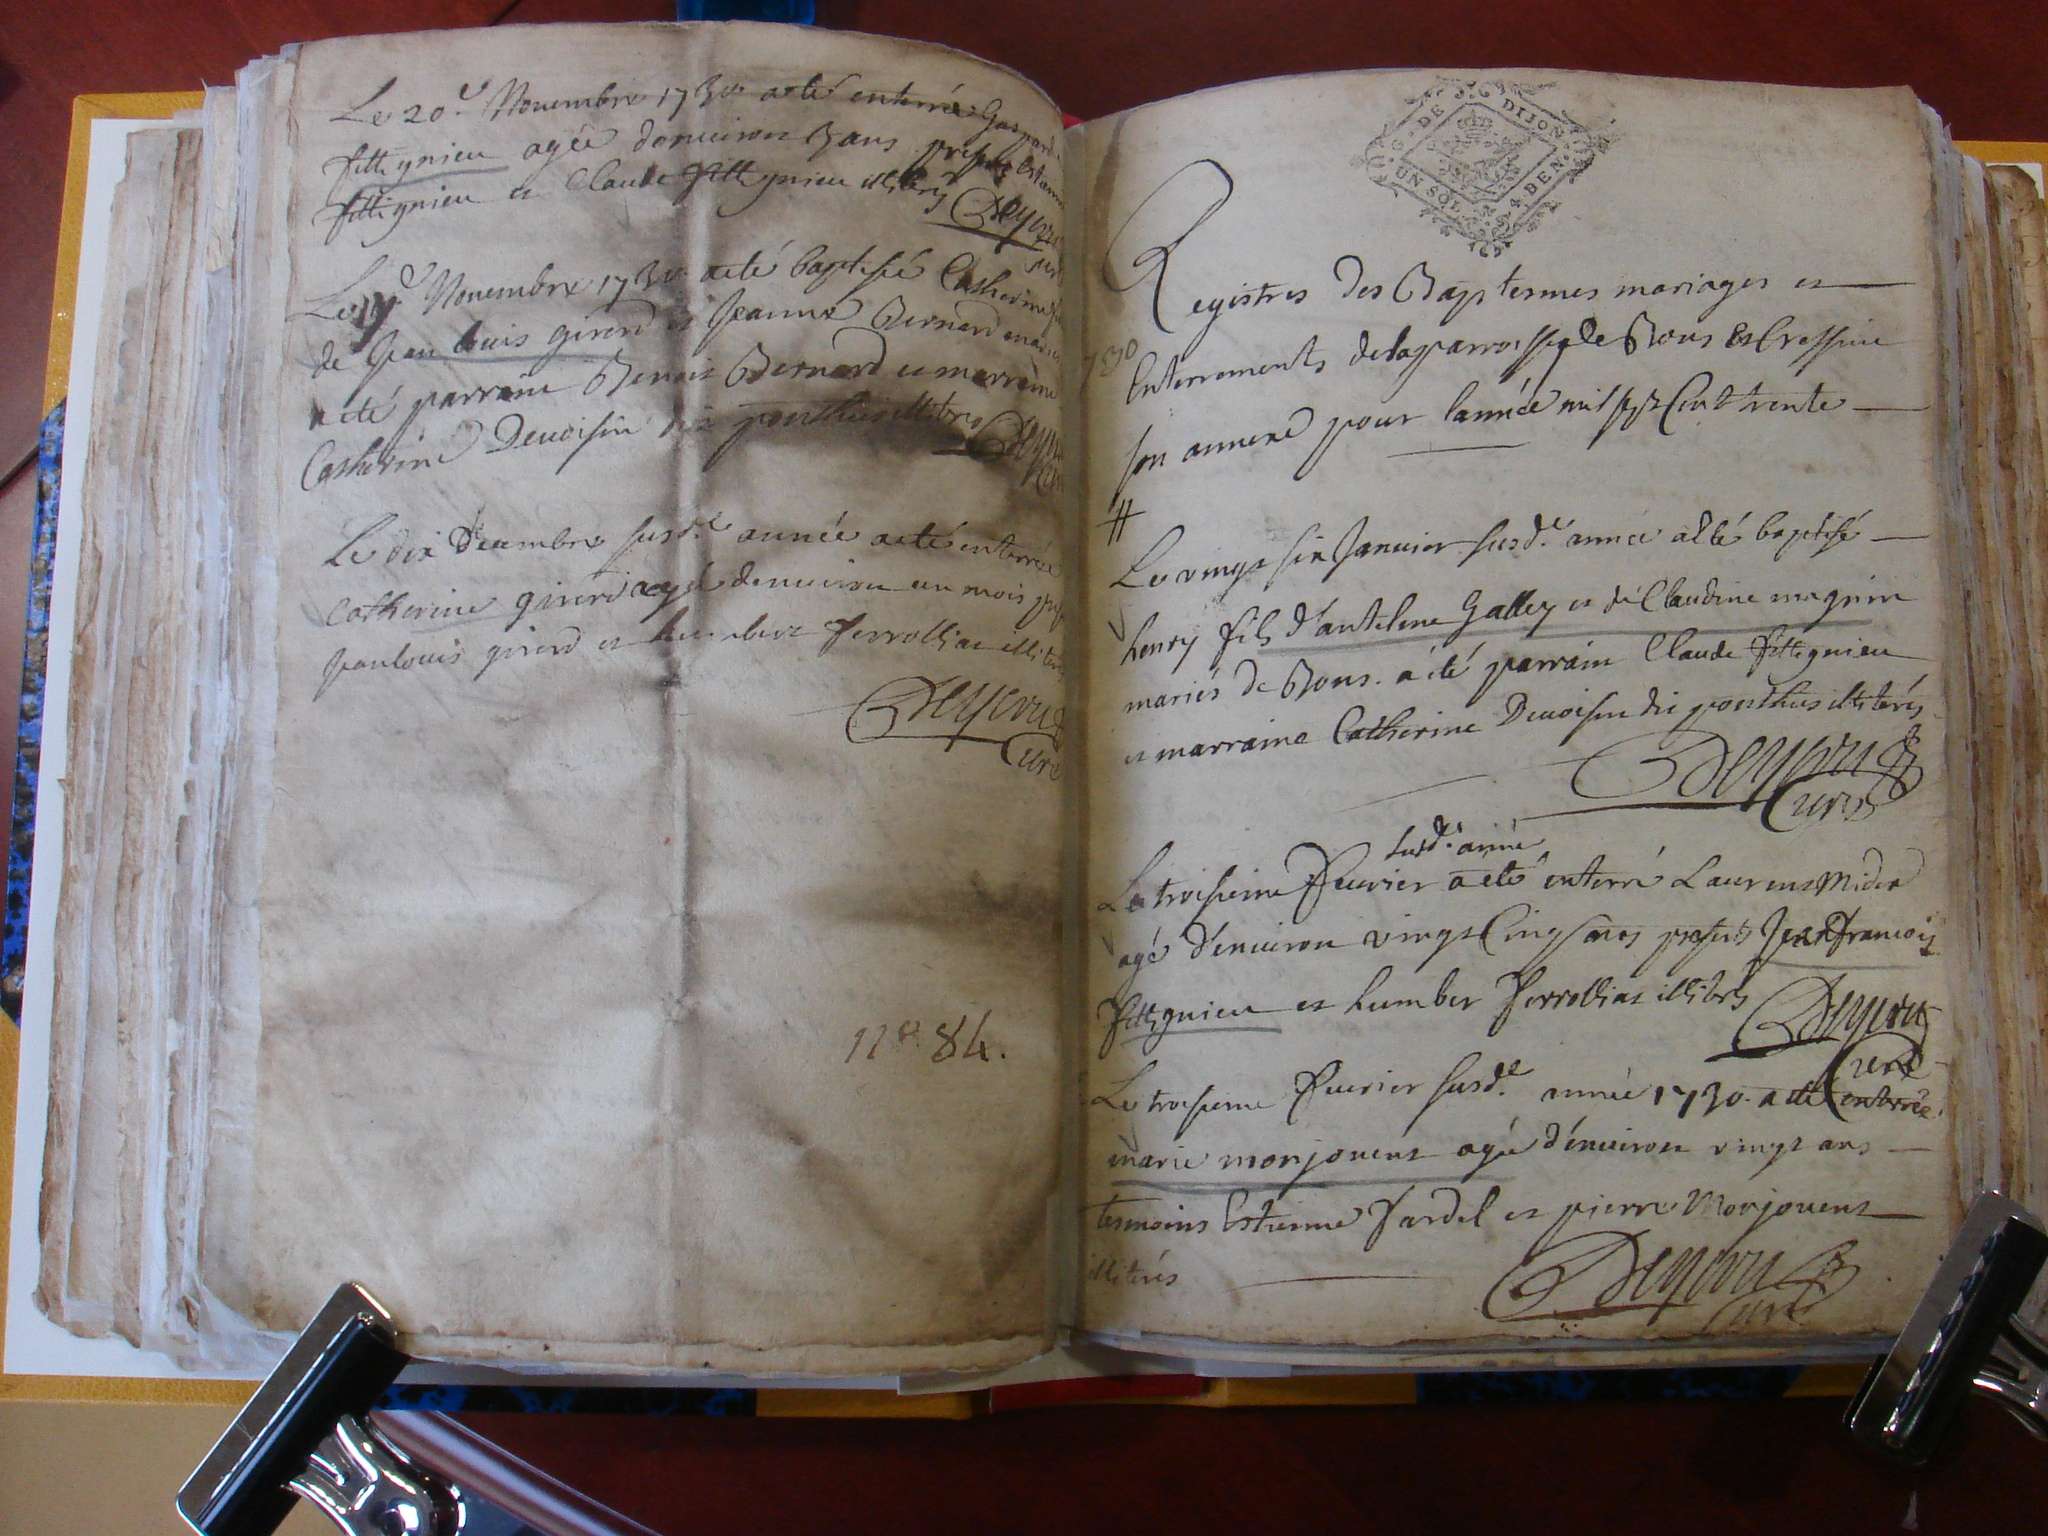 Le 20.e Nouembre 1730 a eté enterrée Gasparde
fittignieu agée denuiron 3 ans presens Estienne
fittignieu et Claude fittignieu illiterés Deyeru
curé
Le Nouembre 1730 a eté baptisée Catherine fille
de Jean louis girerd et Jeanne Bernard mariés
a eté parrain Benoit Bernard et marraine
Catherine Deuoisin dit ponthus illiterés Deyeru
Curé
Le dix decembre susd.e année a eté enterrée
Catherine girerd agée denuiron un mois
Jean louis girerd et humbert ferrollias illiterés
Deyeru
Curé
n.o 84.
G. DE DIJON
UN SOL 4 DEN.
Registres des Baptesmes mariages et
1730
Enterrements de la parroisse de Bons et Cressieu
son annexe pour l'année mil sept Cent trente
Le vingt six Januier susd.e année a eté baptisé
henry fils d'antelme Galley et de Claudine magnin
mariés de Bons. a été parrain Claude fittignieu
et marraine Catherine Deuoisin dit ponthus illiterés
Deyeru
Curé
susd.e année
Le troisieme feurier a eté enterré Laurens Midon
agé d'enuiron vingt Cinq ans presents Jean francois
fittignieu et humber ferrollias illiterés Deyeru
Curé
Le troisieme feurier susd.e année 1730. a eté enterrée
marie monjouent agée d'enuiron vingt ans
tesmoins Estienne Jardel et pierre Monjouent
illiterés
Deyeru
curé